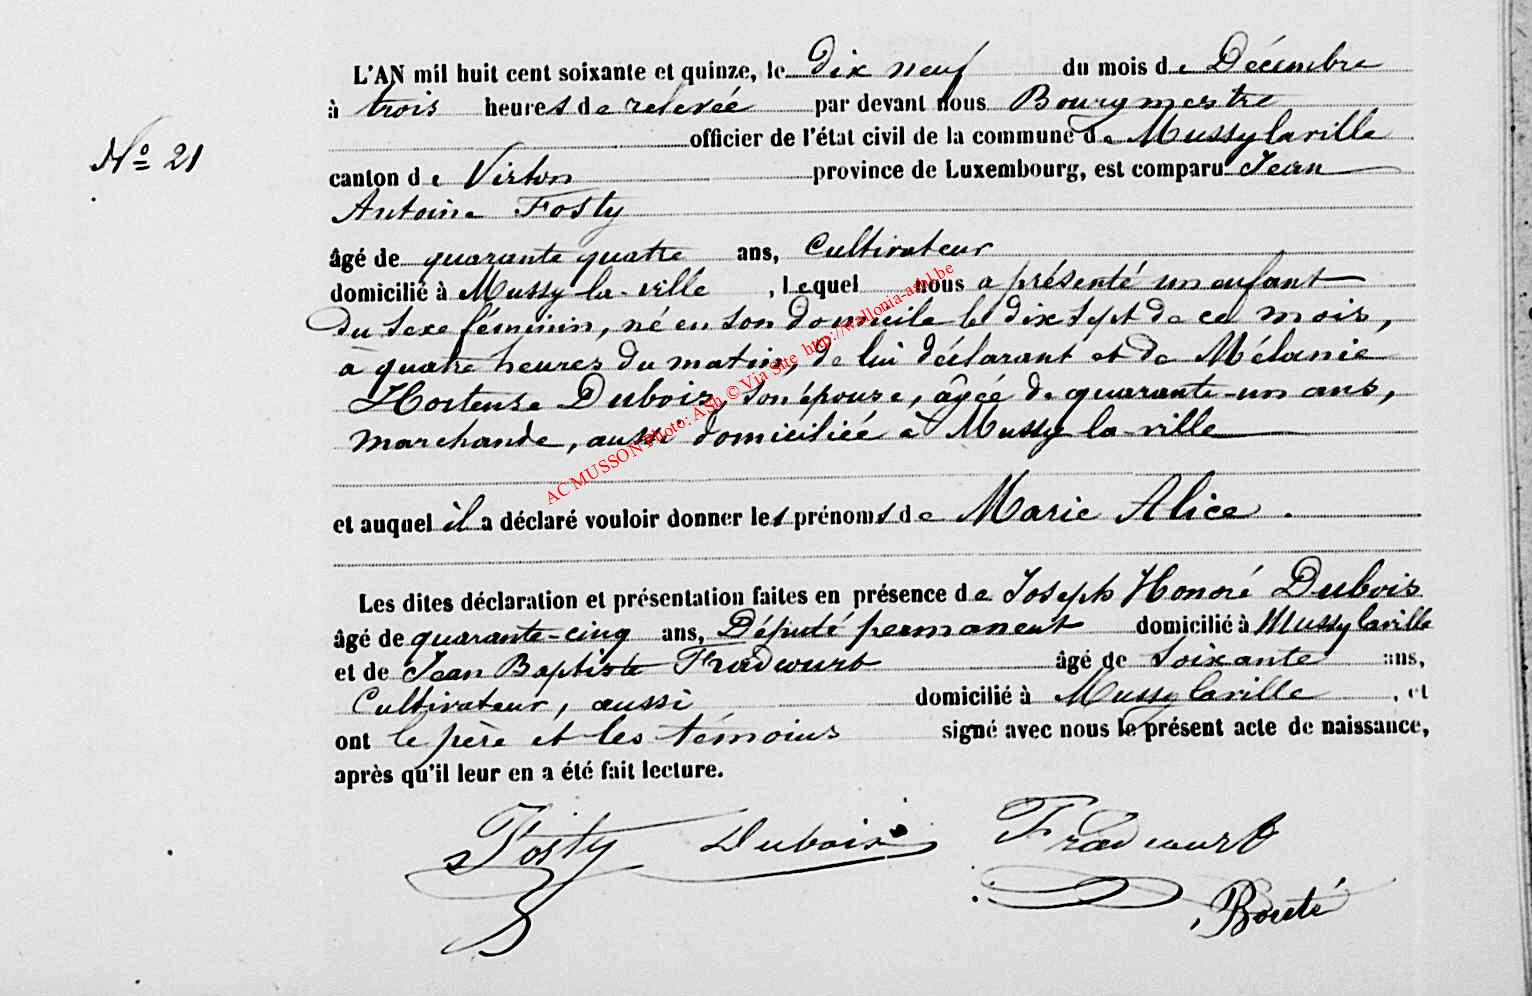 L'AN mil huit cent soixante et quinze, le dix neuf du mois de Décembre
à trois heures de relevée par devant nous Bourgmestre
officier de l'état civil de la commune de Mussy la ville
Nº 21
canton de Virton province de Luxembourg, est comparu Jean
Antoine Fosty
âgé de quarante quatre ans, Cultivateur
domicilié à Mussy-la-ville, lequel nous a présenté un enfant
du sexe féminin, né en son domicile le dix sept de ce mois,
à quatre heures du matin, de lui déclarant et de Mélanie
Hortense Dubois, son épouse, âgée de quarante-un ans,
marchande, aussi domiciliée à Mussy la ville
AC MUSSON Photo: ASh © Via Site http://wallonia-asbl.be
et auquel il a déclaré vouloir donner les prénoms de Marie Alice.
Les dites déclaration et présentation faites en présence de Joseph Honoré Dubois
âgé de quarante-cinq ans, Député permanent domicilié à Mussy laville
et de Jean Baptiste Fradcourt âgé de soixante ans,
Cultivateur, aussi domicilié à Mussy laville, et
ont le père et les témoins signé avec nous le présent acte de naissance,
après qu'il leur en a été fait lecture.
Fosty Dubois Fradcourt
Bouté